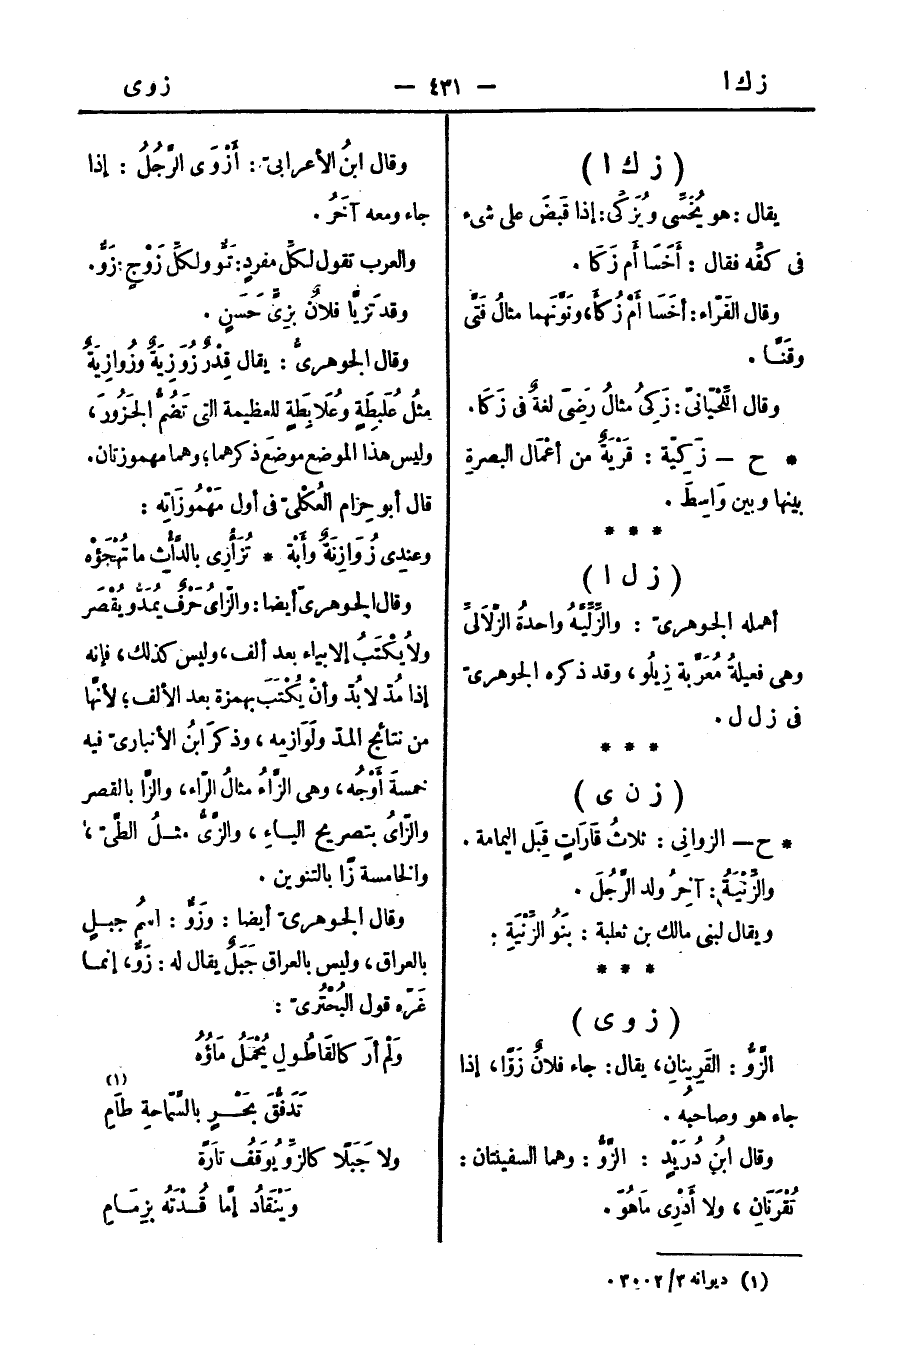 زكا — ٤٣١ — زوى
( ز ك ا )
يقال : هو يُخَسِّى ويُزَكِّى: إذا قَبَضَ على شىء
فى كفّه فقال : أَخَسَا أم زَكَا .
وقال الفَرّاء: أخَسَا أمْ زُكَأَ، ونَوَّنَهما مثالُ فَتًى
وقَنًا .
وقال اللِّحْيَانىّ: زَكِىَ مثالُ رَضِىَ لغةٌ فى زَكَا.
* ح – زَكِيّة : قَرْيَةٌ من أعْمَال البصرةِ
بينها وبين وَاسِطَ .
* * *
( ز ل ا )
أهمله الجوهرىّ : والزِّلِّيَّةُ واحدةُ الزَّلَالىِّ
وهى فعيلةٌ مُعَرَّبة زِيلُو ، وقد ذكره الجوهرىّ
فى ز ل ل .
* * *
( ز ن ى )
* ح – الزوانى : ثلاثُ قَارَاتٍ قِبَل اليمامة .
والزِّنْيَةُ: آخِرُ ولد الرَّجُلَ .
ويقال لبنى مالك بن ثعلبة : بَنُو الزِّنْيَةِ .
* * *
( ز و ى )
الزَّوُّ : القَرِينانِ، يقال: جاء فلانٌ زَوًّا، إذا
جاء هو وصاحبُه .
وقال ابنُ دُرَيْدٍ : الزَّوُّ : وهما السفينتان :
تُقْرَنَانِ ، ولا أَدْرِى مَا هُوَ .
(١) ديوانه ٣/٢٠٠٣٠
وقال ابنُ الأعرابىّ : أَزْوَى الرَّجُلُ : إذا
جاء ومعه آخَرُ .
والعرب تقول لكلّ مفردٍ: تَوٌّ ولكلِّ زَوْجٍ: زَوٌّ.
وقد تَزيَّا فلانٌ بزِىٍّ حَسَنٍ .
وقال الجوهرىُّ : يقال قِدْرٌ زُوَزِيَةٌ وزُوازِيَةٌ
مثلُ عُلَبِطَةٍ وعُلَابَطَةٍ للعظيمة التى تَضُمُّ الجَزُورَ،
وليس هذا الموضع موضعَ ذكرهما؛ وهما مهموزتان.
قال أبو حِزام العُكْلىّ فى أول مَهْمُوزَاتِه :
وعندى زُوَازِئَةٌ وأْبَة * تُزَأْزِى بالدَّأْثِ ما تُهْجَؤُه
وقال الجوهرىّ أيضا: والزّاىُ حَرْفٌ يُمَدُّ ويُقْصَر
ولا يُكْتَبُ إلا بياء بعد ألف، وليس كذلك، فإنه
إذا مُدّ لا بُدّ وأنْ يُكْتَبَ بهمزة بعد الألف؛ لأنّها
من نتائج المدّ ولَوَازِمِه ، وذكَر ابنُ الأنبارىّ فيه
خمسةَ أَوْجُه، وهى الزَّاءُ مثالُ الرّاء، والزَّا بالقصر
والزّاىُ بتصريح الياء ، والزَّىُّ مثلُ الطَّىّ ،
والخامسة زًا بالتنوين .
وقال الجوهرىّ أيضا : وزَوٌّ : اسمُ جبلٍ
بالعراق، وليس بالعراق جَبَلٌ يقال له : زَوٌّ، إنما
غَرّه قول البُحْتُرىّ :
ولَم أرَ كالقَاطُولِ يُحْمَلُ مَاؤُهُ
تَدَفُّقَ بَحْرٍ بالسَّمَاحةِ طَامِ (١)
ولا جَبَلًا كالزوِّ يُوقَفُ تارَةً
ويَنْقَادُ إمَّا قُدْتَهُ بِزِمَامِ